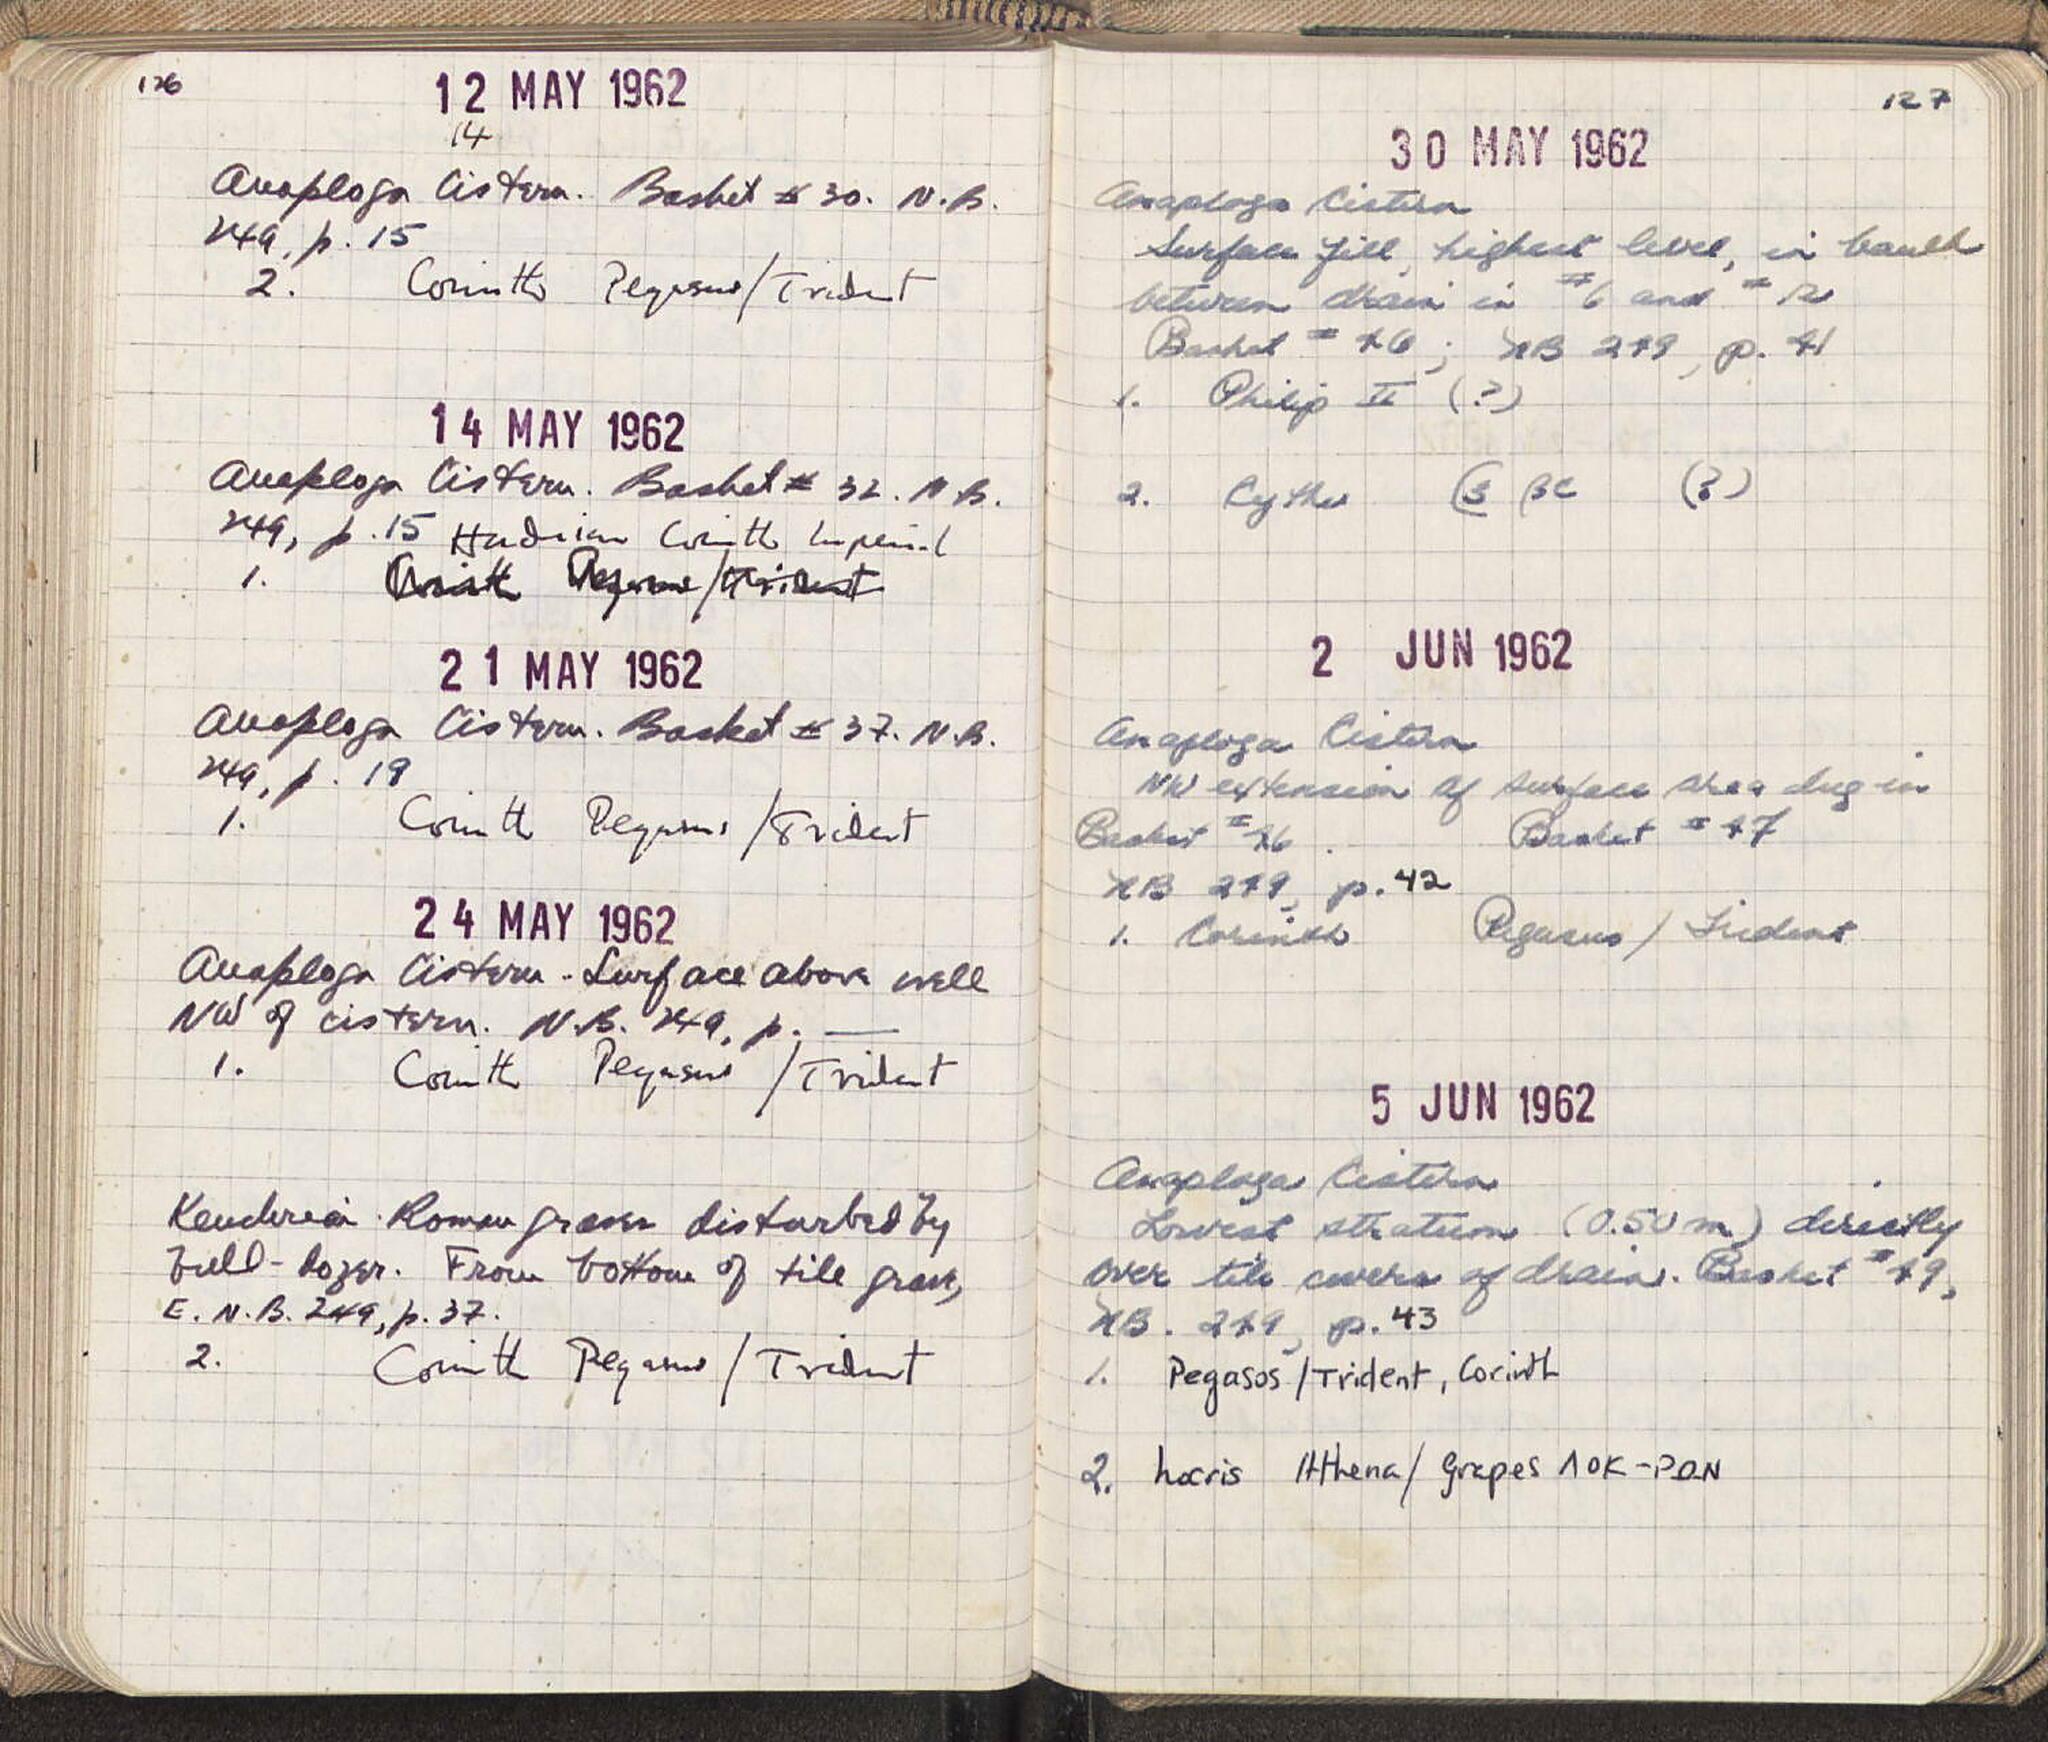 126
12 MAY 1962
14
Anaploga Cistern. Basket # 30. N.B.
249, p. 15
2. Corinth Pegasus/Trident
14 MAY 1962
Anaploga Cistern. Basket # 32. N.B.
249, p. 15 Hadrian Corinth Imperial
1. Corinth Pegasus/Trident
21 MAY 1962
Anaploga Cistern. Basket # 37. N.B.
249, p. 19
1. Corinth Pegasus/Trident
24 MAY 1962
Anaploga Cistern. Surface above well
NW of cistern. N.B. 249, p. —
1. Corinth Pegasus/Trident
Roman graves disturbed by
bull-dozer. From bottom of tile grave,
E. N.B. 249, p. 37.
2. Corinth Pegasus/Trident
127
30 MAY 1962
Anaploga Cistern
Surface fill, highest level, in
between drain in #6 and # 12
Basket # 46; NB 249, p. 41
1. Philip II (?)
2. (?)
2 JUN 1962
Anaploga Cistern
NW extension of surface area dug in
Basket # 46. Basket # 47
NB 249, p. 42
1. Corinth Pegasus/Trident
5 JUN 1962
Anaploga Cistern
Lowest stratum (0.50 m) directly
over tile covers of drain. Basket # 49,
NB. 249, p. 43
1. Pegasos/Trident, Corinth
2. Locris Athena/Grapes ΛΟΚ-ΡΩΝ